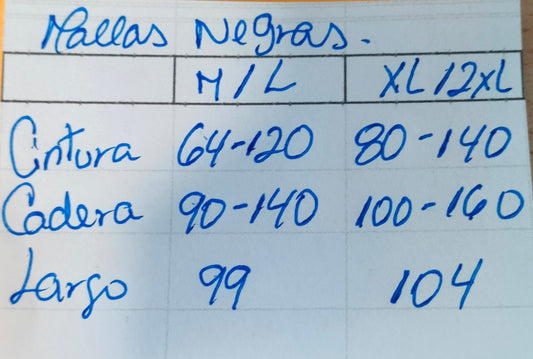 Mallas Negras.
M/L XL/2XL
Cintura 64-120 80-140
Cadera 90-140 100-160
Largo 99 104